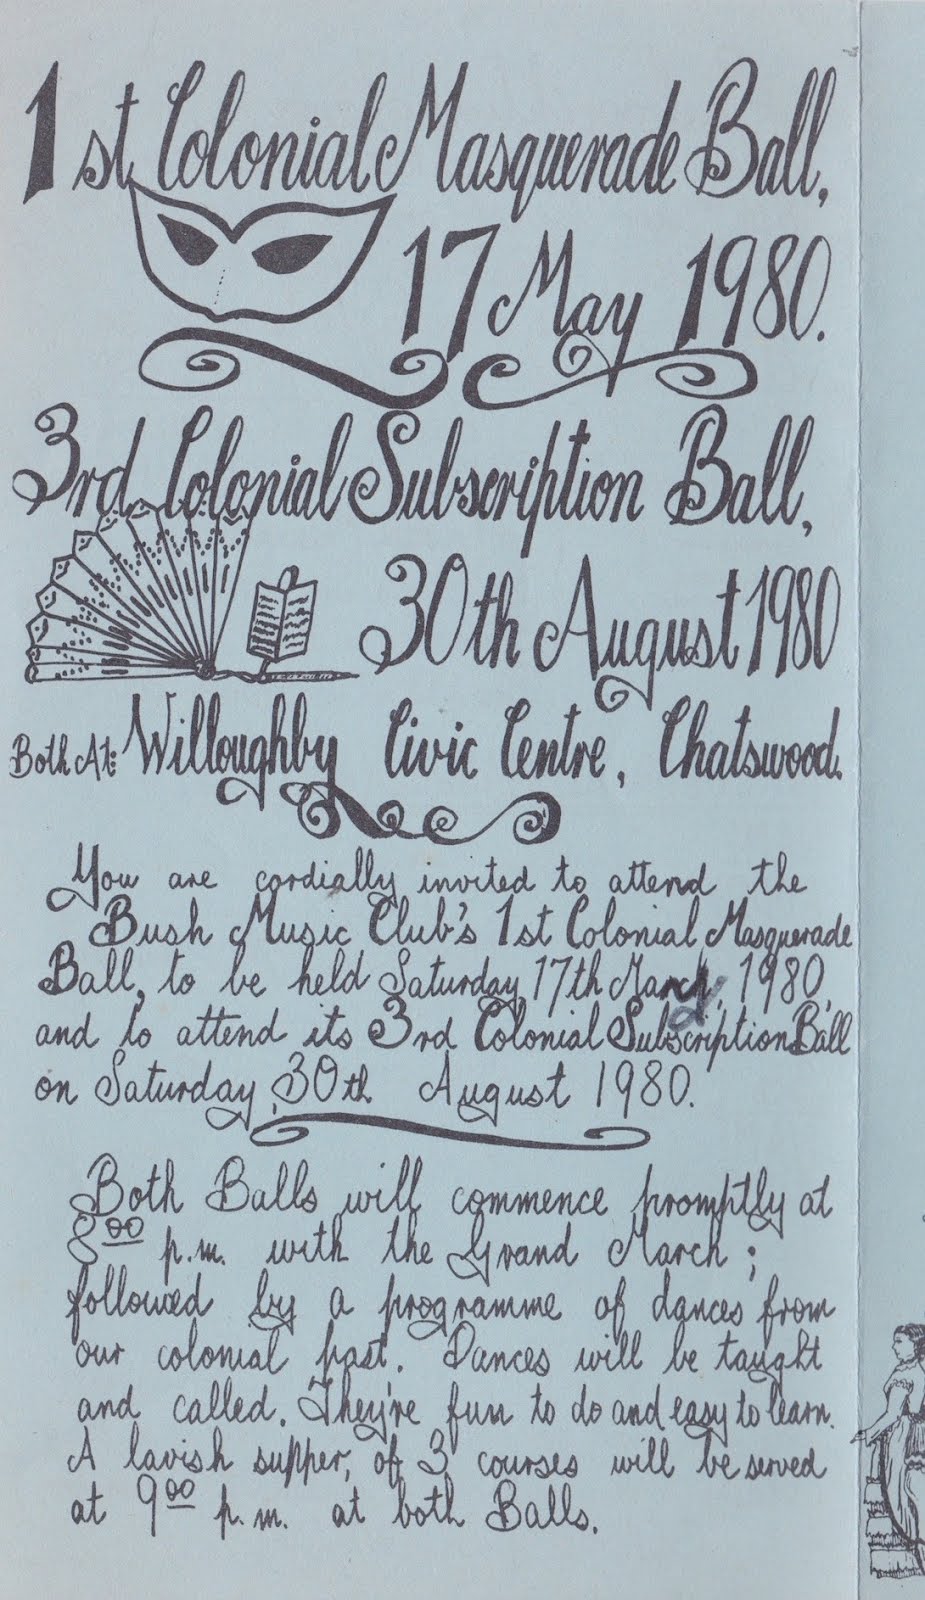 1st Colonial Masquerade Ball,
17 May 1980.
3rd Colonial Subscription Ball,
30th August 1980
Both At: Willoughby Civic Centre, Chatswood.
You are cordially invited to attend the
Bush Music Club's 1st Colonial Masquerade
Ball, to be held Saturday, 17th March, 1980,
and to attend its 3rd Colonial Subscription Ball
on Saturday, 30th August 1980.
Both Balls will commence promptly at
8⁰⁰ p.m. with the Grand March;
followed by a programme of dances from
our colonial past. Dances will be taught
and called. They're fun to do and easy to learn.
A lavish supper, of 3 courses will be served
at 9⁰⁰ p.m. at both Balls.